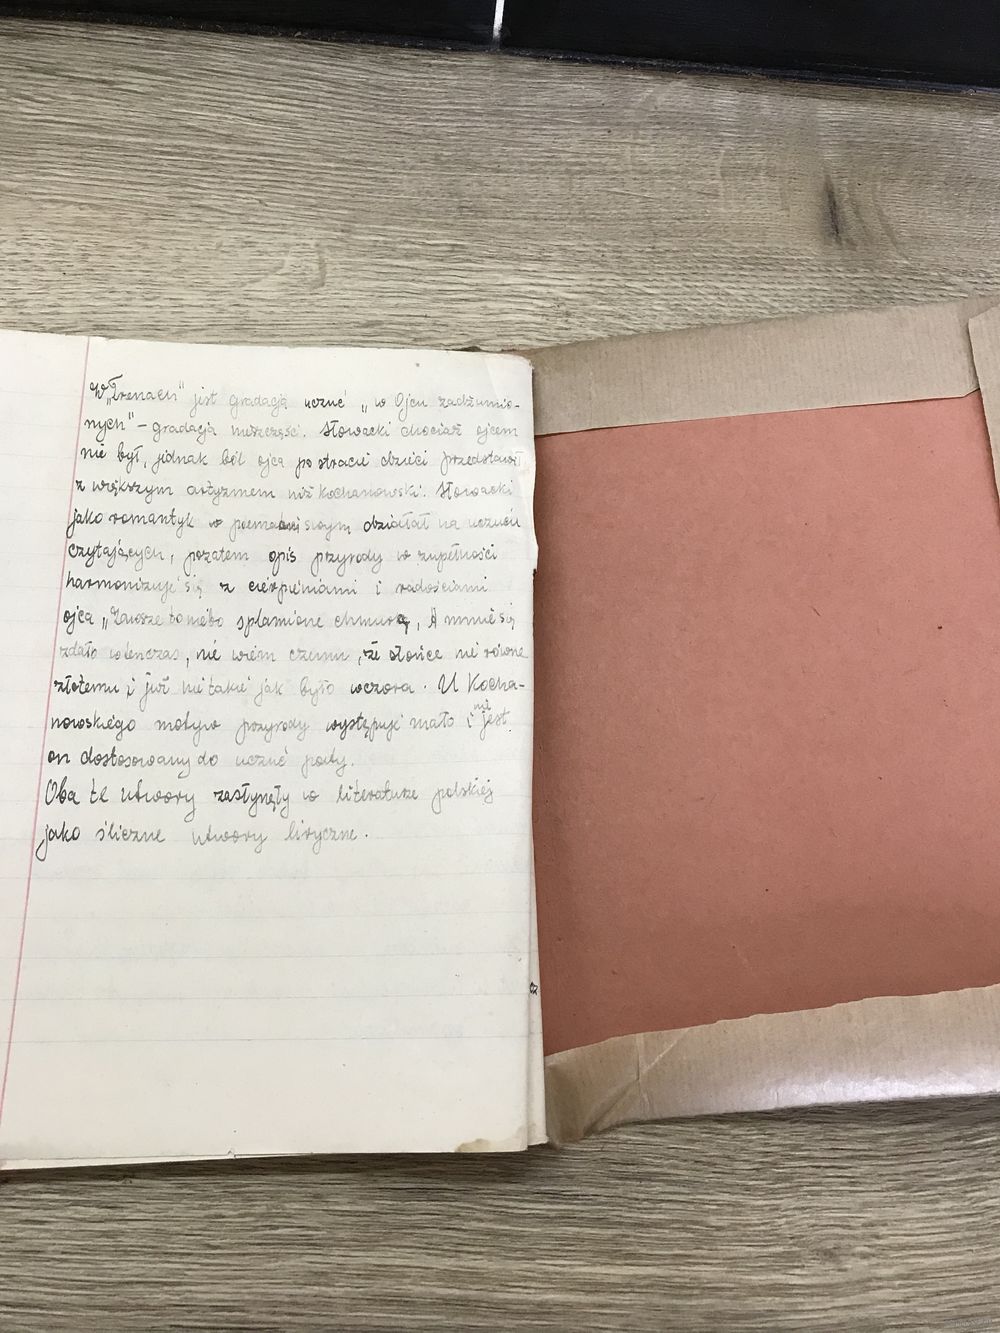 W „Trenach" jest gradacja uczuć „w Ojcu zadżumio-
nych" – gradacja nieszczęść. Słowacki chociaż ojcem
nie był, jednak ból ojca po stracie dzieci przedstawił
z większym artyzmem niż Kochanowski. Słowacki
jako romantyk w poemacie swoym działał na uczucia
czytających, pozatem opis przyrody w zupełności
harmonizuje się z cierpieniami i radościami
ojca „Zawsze to niebo splamione chmurą, A mnie się
zdało wtenczas, nie wiem czemu, że słońce nie równe
złotemu i już nie takie jak było wczora. U Kocha-
nowskiego motyw przyrody występuje mało i nie jest
on dostosowany do uczuć poety.
Oba te utwory zasłynęły w literaturze polskiej
jako śliczne utwory liryczne.